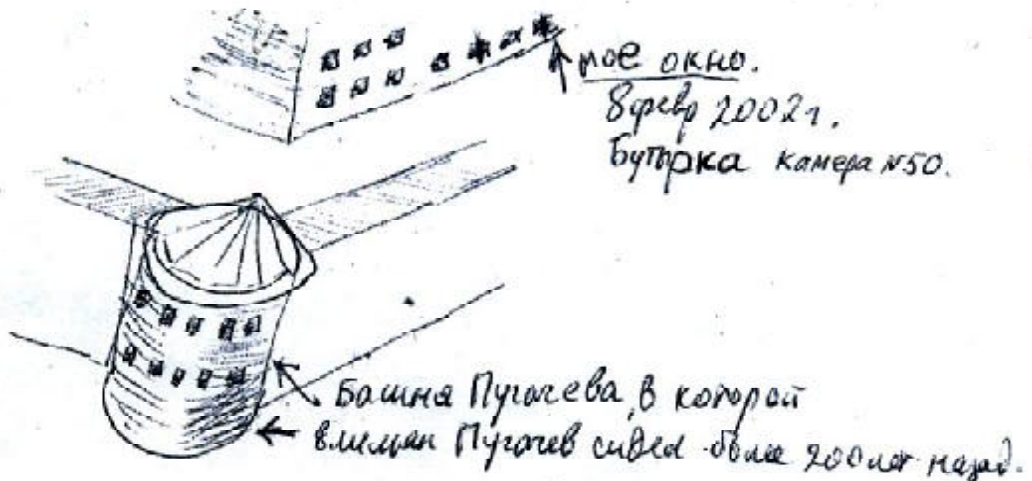 мое окно.
8 февр 2002г.
Бутырка камера №50.
Башня Пугачева, в которой
Пугачев сидел более 200 лет назад.